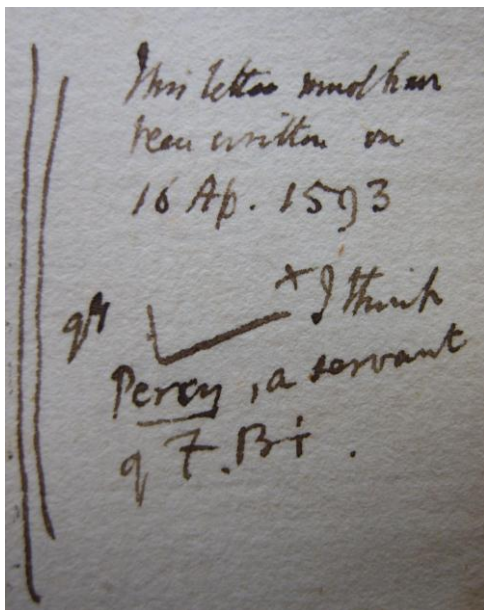 This letter must have
been written on
16 Ap. 1593
x I think
Percy, a servant
of F. B